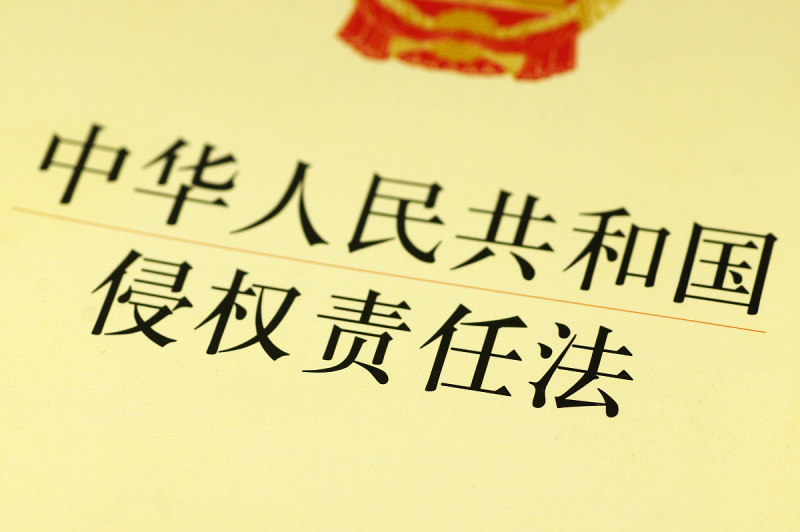 中华人民共和国
侵权责任法